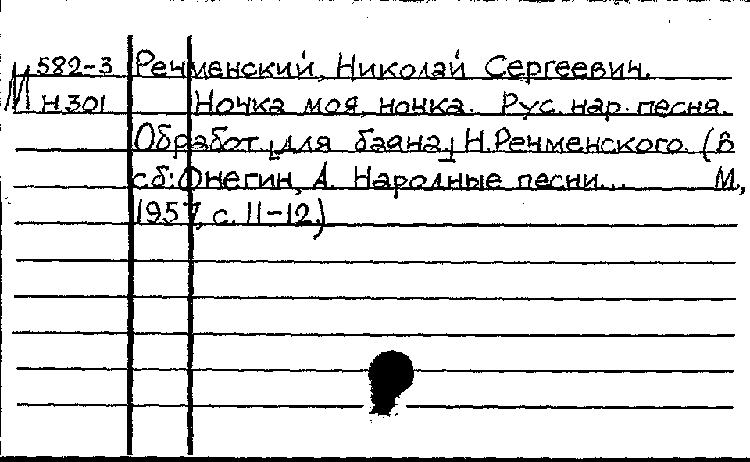 М 582-3 Речменский, Николай Сергеевич.
Н301 Ночка моя, ночка. Рус. нар. песня.
Обработ. [для баяна] Н.Речменского. (В
сб: Онегин, А. Народные песни... М.,
1957, с. 11-12.)